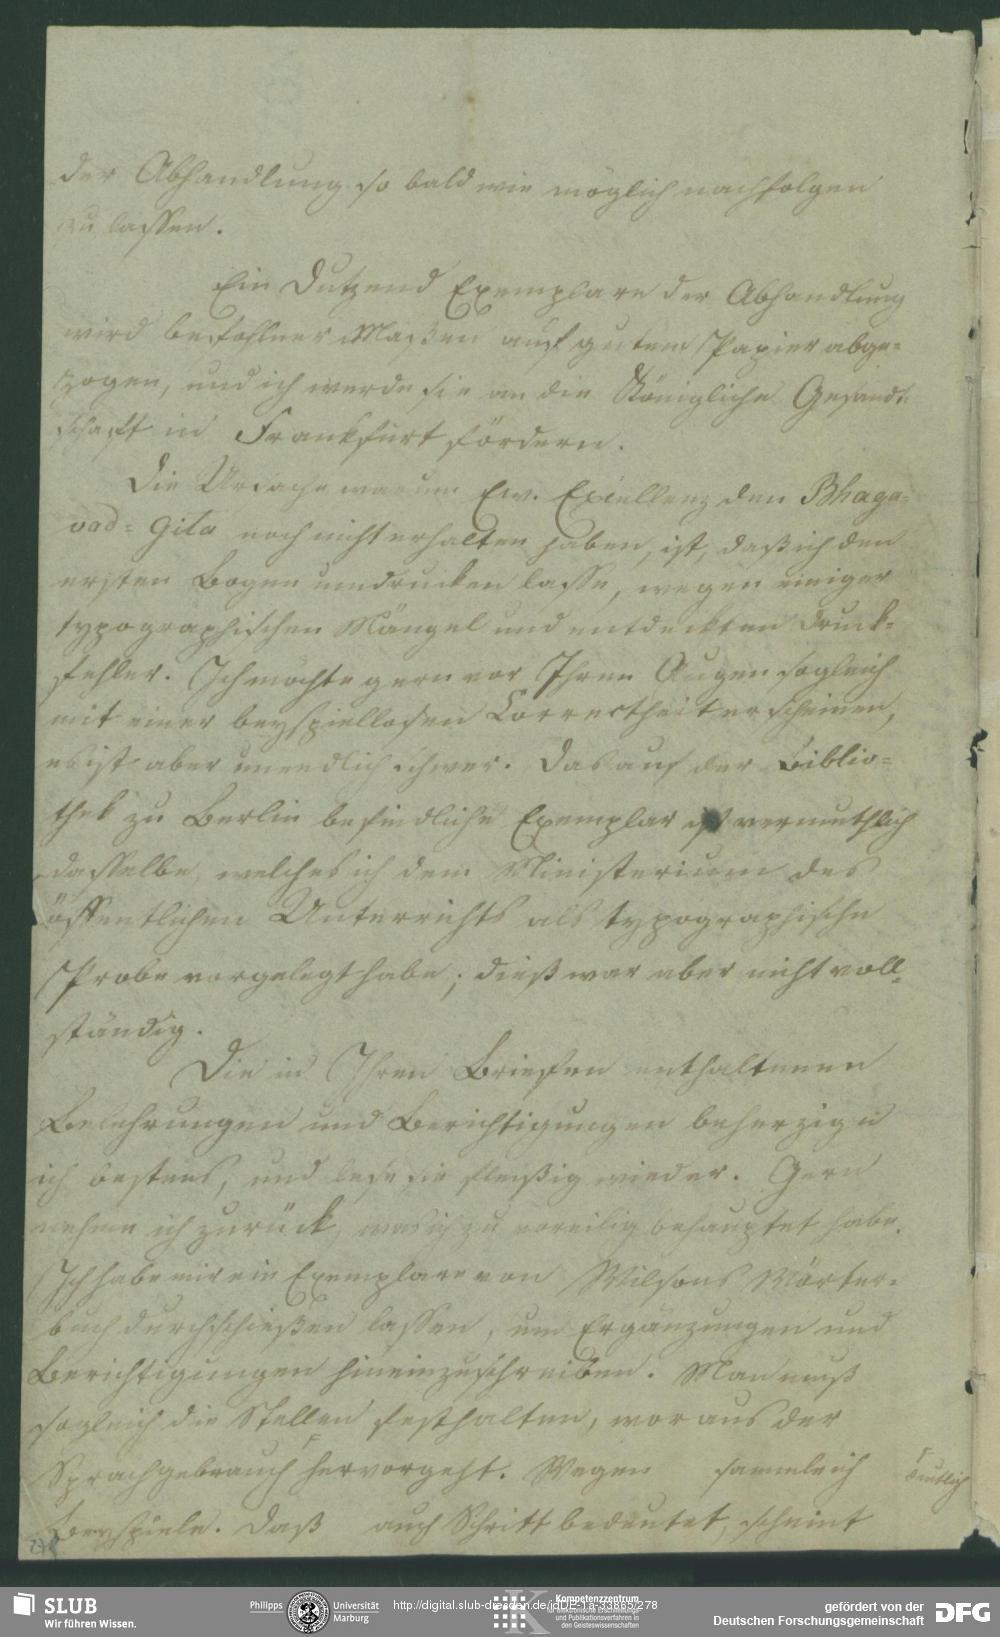 der Abhandlung so bald wie möglich nachfolgen
zu lassen.
Ein Dutzend Exemplare der Abhandlung
wird befohlner Maßen auf gutem Papier abge=
zogen, und ich werde sie an die Königliche Gesandt=
schaft in Frankfurt fördern.
Die Ursache warum Ew. Excellenz den Bhaga=
vad=Gita noch nicht erhalten haben, ist, daß ich den
ersten Bogen umdrucken lasse, wegen einiger
typographischen Mängel und entdeckten Druck=
fehler. Ich möchte gern vor Ihren Augen sogleich
mit einer beyspiellosen Correctheit erscheinen,
es ist aber unendlich schwer. Das auf der Biblio=
thek zu Berlin befindliche Exemplar ist vermuthlich
dasselbe, welches ich dem Ministerium des
öffentlichen Unterrichts als typographische
Probe vorgelegt habe; dieß war aber nicht voll=
ständig.
Die in Ihren Briefen enthaltenen
Belehrungen und Berichtigungen beherzige
ich bestens, und lese sie fleißig wieder. Gern
nehme ich zurück, was ich zu voreilig behauptet habe.
Ich habe mir ein Exemplare von Wilsons Wörter=
buch durchschießen lassen, um Ergänzungen und
Berichtigungen hineinzuschreiben. Man muß
sogleich die Stellen festhalten, woraus der
Sprachgebrauch hervorgeht. Wegen sammle ich
deutlich
Beyspiele. Daß auch Schritt bedeutet, scheint
278
SLUB
Wir führen Wissen.
Philipps Universität
Marburg
http://digital.slub-dresden.de/idDE-1a-33865/278
Kompetenzzentrum
für elektronische Erschließungs-
und Publikationsverfahren in
den Geisteswissenschaften
gefördert von der
Deutschen Forschungsgemeinschaft
DFG